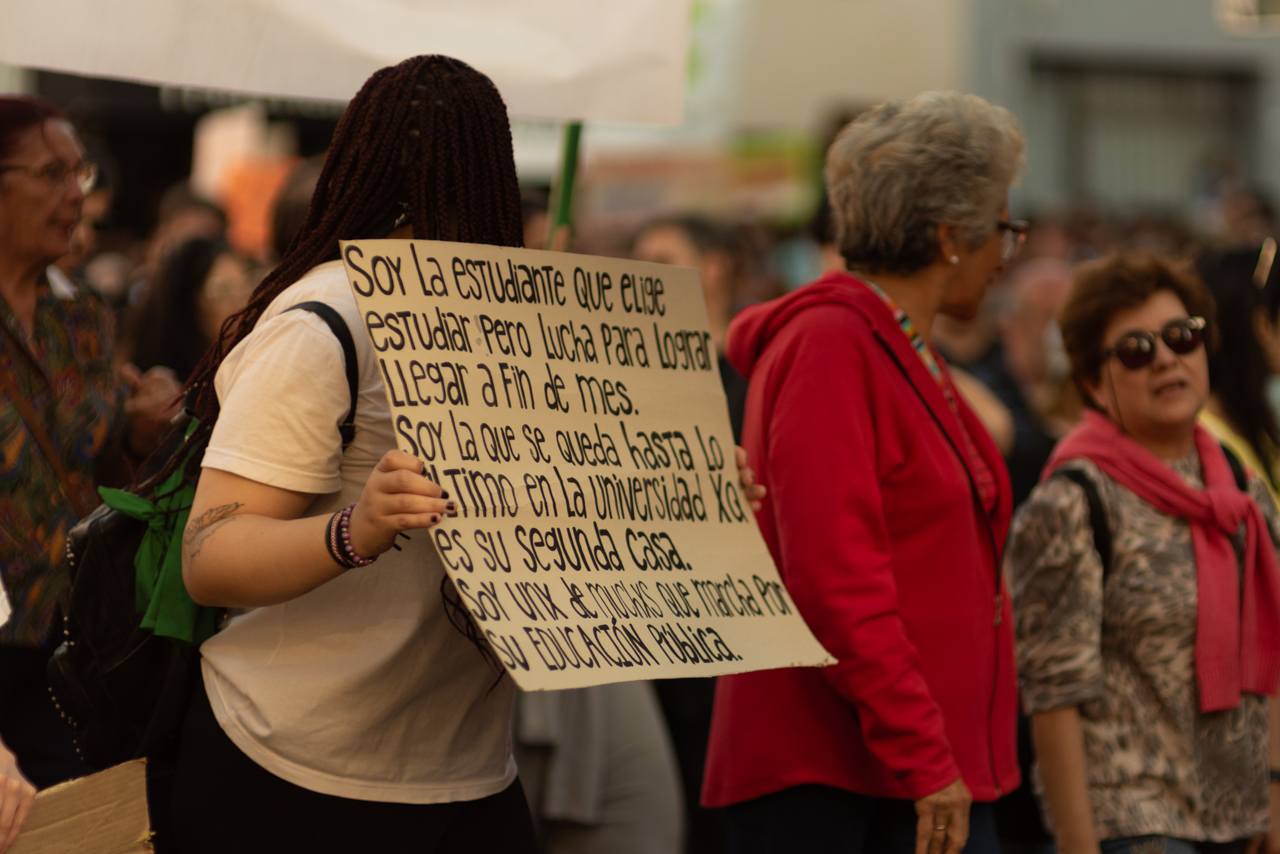 Soy la estudiante que elige
estudiar pero lucha para lograr
llegar a fin de mes.
Soy la que se queda hasta lo
último en la universidad xq
es su segunda casa.
Soy unx de muchxs que marcha por
su EDUCACIÓN Pública.